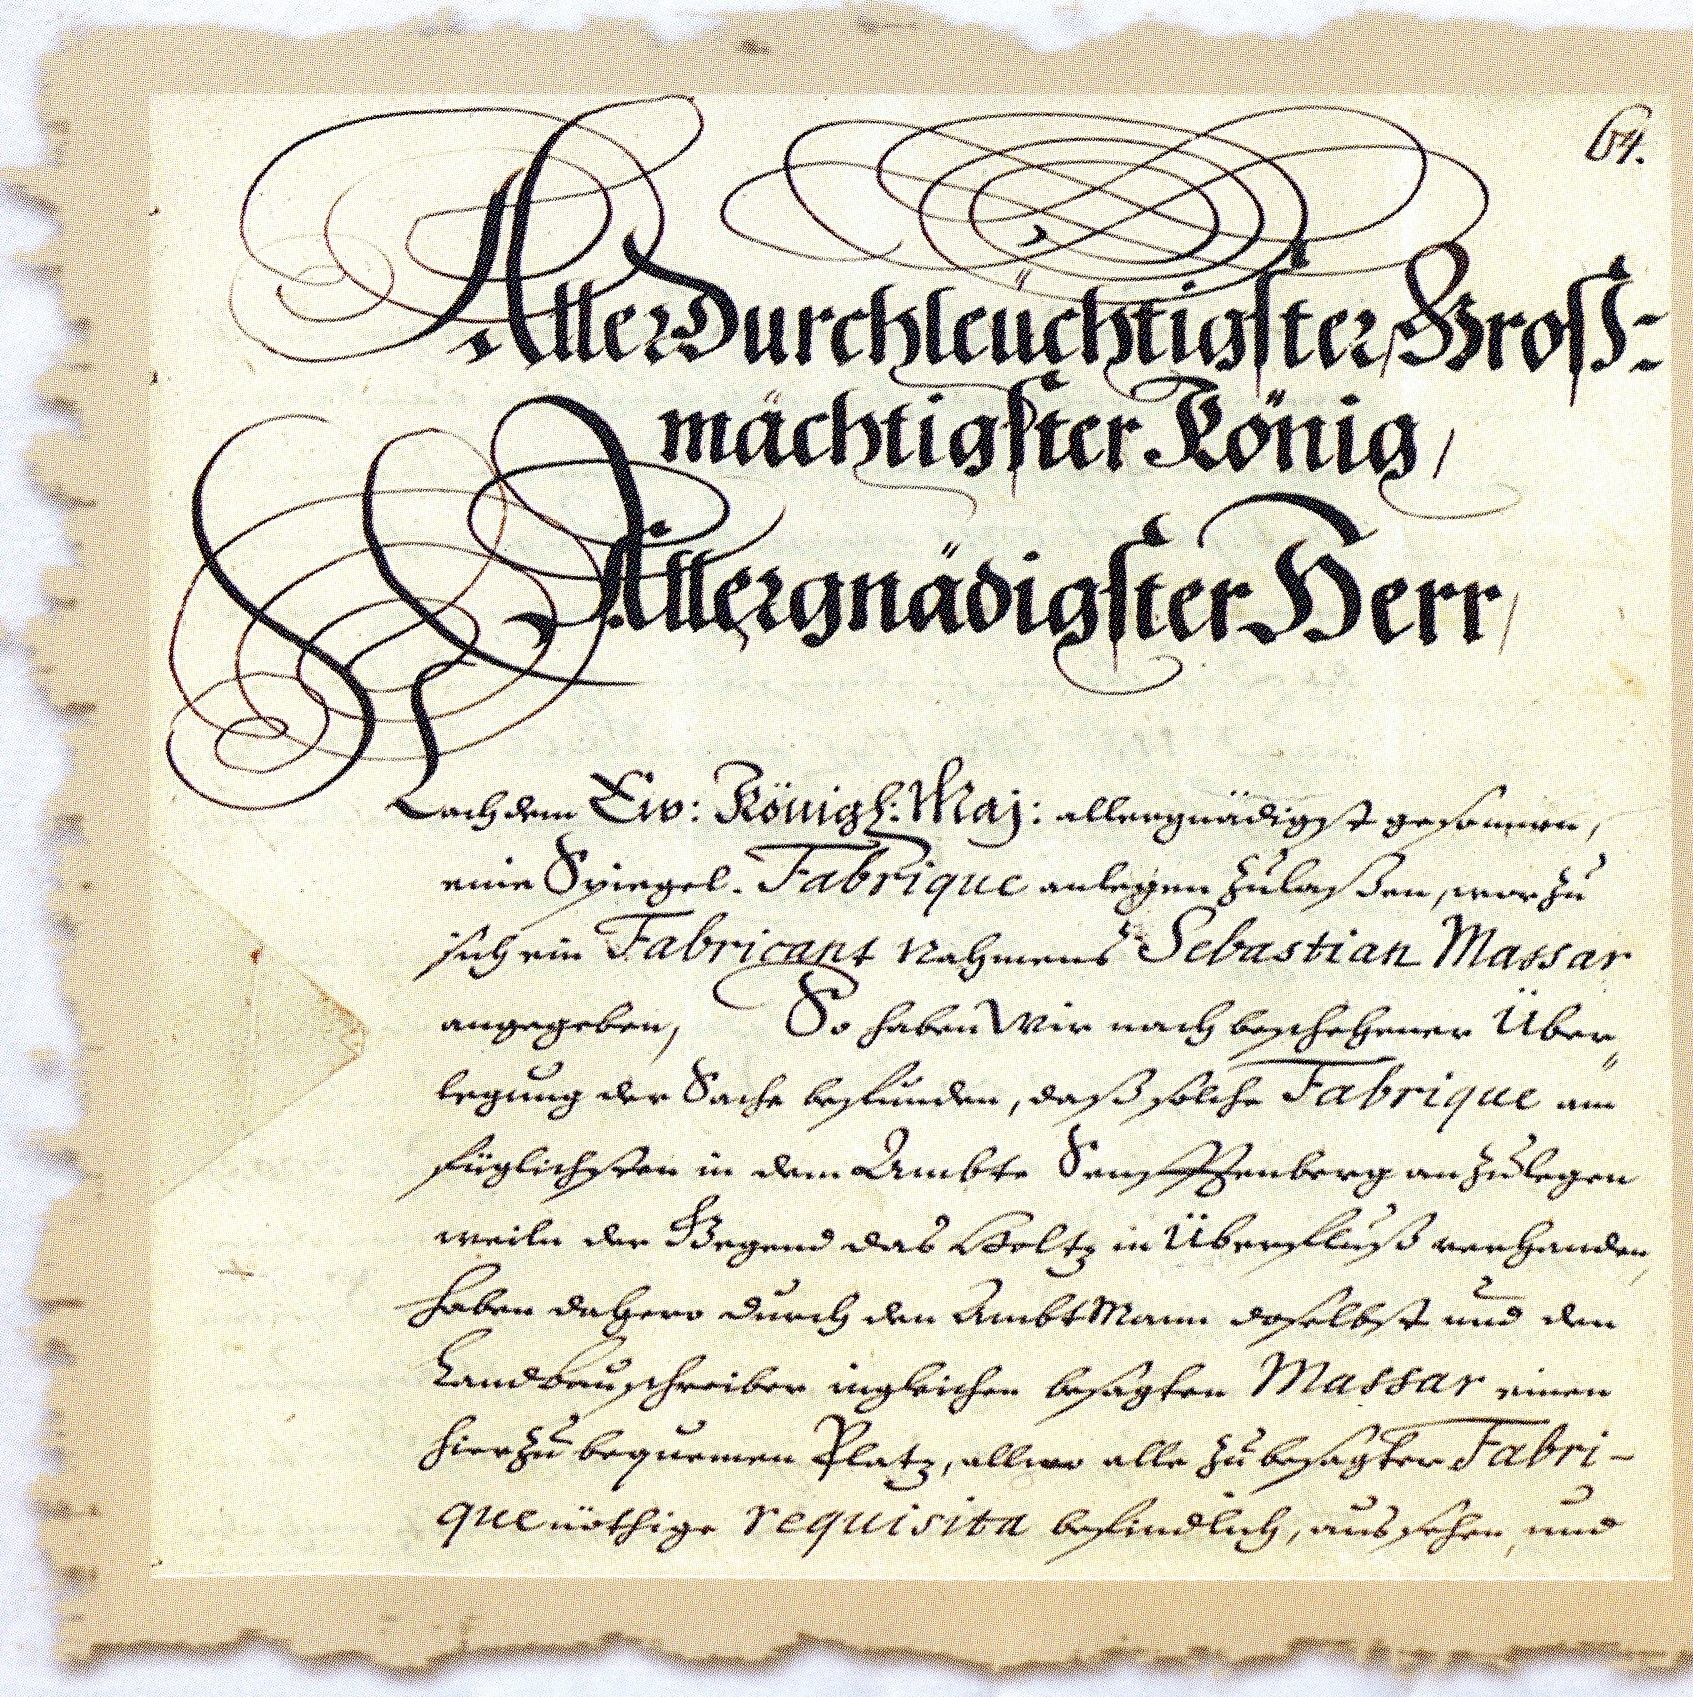 64.
AllerDurchleüchtigster, Groß-
mächtigster König,
Allergnädigster Herr,
Nachdem Ew: Königl: Maj: allergnädigst gesonnen,
eine Spiegel-Fabrique anlegen zülaßen, worzü
sich ein Fabricant Nahmens Sebastian Massar
angegeben, So haben Wir nach beschehener Über
legung der Sache befunden, daß solche Fabrique am
füglichsten in dem Ambte Senfftenberg anzülegen
weiln der Gegend das Holtz in Überfluß verhanden,
haben dahero durch den AmbtMann daselbst und den
Landbauschreiber ingleichen besagten Massar einen
hierzü bequemen Platz, allwo alle zü besagter Fabri-
que nöthige requisita befindlich, aussehen, und